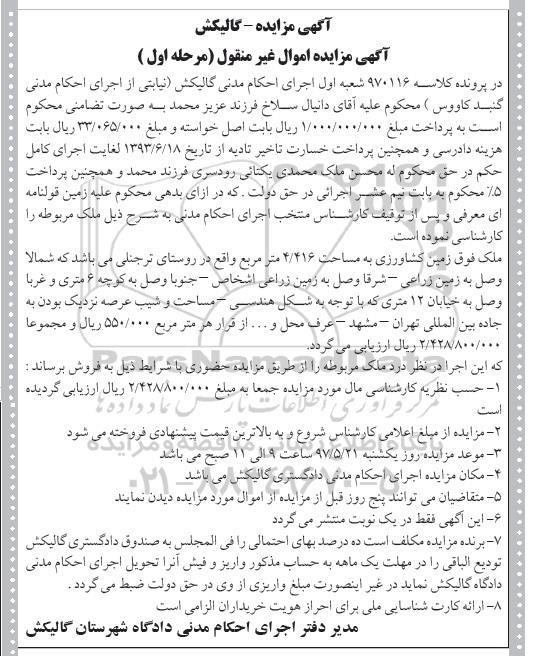 آگهی مزایده – گالیکش
آگهی مزایده اموال غیر منقول (مرحله اول )
در پرونده کلاسه ۹۷۰۱۱۶ شعبه اول اجرای احکام مدنی گالیکش (نیابتی از اجرای احکام مدنی
گنبد کاووس ) محکوم علیه آقای دانیال سلاخ فرزند عزیز محمد به صورت تضامنی محکوم
است به پرداخت مبلغ ۱/۰۰۰/۰۰۰/۰۰۰ ریال بابت اصل خواسته و مبلغ ۳۳/۰۶۵/۰۰۰ ریال بابت
هزینه دادرسی و همچنین پرداخت خسارت تاخیر تادیه از تاریخ ۱۳۹۳/۶/۱۸ لغایت اجرای کامل
حکم در حق محکوم له محسن ملک محمدی یکتائی رودسری فرزند محمد و همچنین پرداخت
۵٪ محکوم به بابت نیم عشر اجرائی در حق دولت . که در ازای بدهی محکوم علیه زمین قولنامه
ای معرفی و پس از توقیف کارشناس منتخب اجرای احکام مدنی به شرح ذیل ملک مربوطه را
کارشناسی نموده است.
ملک فوق زمین کشاورزی به مساحت ۴/۴۱۶ متر مربع واقع در روستای ترجنلی می باشد که شمالا
وصل به زمین زراعی – شرقا وصل به زمین زراعی اشخاص – جنوبا وصل به کوچه ۶ متری و غربا
وصل به خیابان ۱۲ متری که با توجه به شکل هندسی – مساحت و شیب عرصه نزدیک بودن به
جاده بین المللی تهران – مشهد – عرف محل و ... از قرار هر متر مربع ۵۵۰/۰۰۰ ریال و مجموعا
۲/۴۲۸/۸۰۰/۰۰۰ ریال ارزیابی می گردد.
که این اجرا در نظر درد ملک مربوطه را از طریق مزایده حضوری با شرایط ذیل به فروش برساند :
۱- حسب نظریه کارشناسی مال مورد مزایده جمعا به مبلغ ۲/۴۲۸/۸۰۰/۰۰۰ ریال ارزیابی گردیده
است
۲- مزایده از مبلغ اعلامی کارشناس شروع و به بالاترین قیمت پیشنهادی فروخته می شود
۳- موعد مزایده روز یکشنبه ۹۷/۵/۲۱ ساعت ۹ الی ۱۱ صبح می باشد
۴- مکان مزایده اجرای احکام مدنی دادگستری گالیکش می باشد
۵- متقاضیان می توانند پنج روز قبل از مزایده از اموال مورد مزایده دیدن نمایند
۶- این آگهی فقط در یک نوبت منتشر می گردد
۷- برنده مزایده مکلف است ده درصد بهای احتمالی را فی المجلس به صندوق دادگستری گالیکش
تودیع الباقی را در مهلت یک ماهه به حساب مذکور واریز و فیش آنرا تحویل اجرای احکام مدنی
دادگاه گالیکش نماید در غیر اینصورت مبلغ واریزی از وی در حق دولت ضبط می گردد .
۸- ارائه کارت شناسایی ملی برای احراز هویت خریداران الزامی است
مدیر دفتر اجرای احکام مدنی دادگاه شهرستان گالیکش